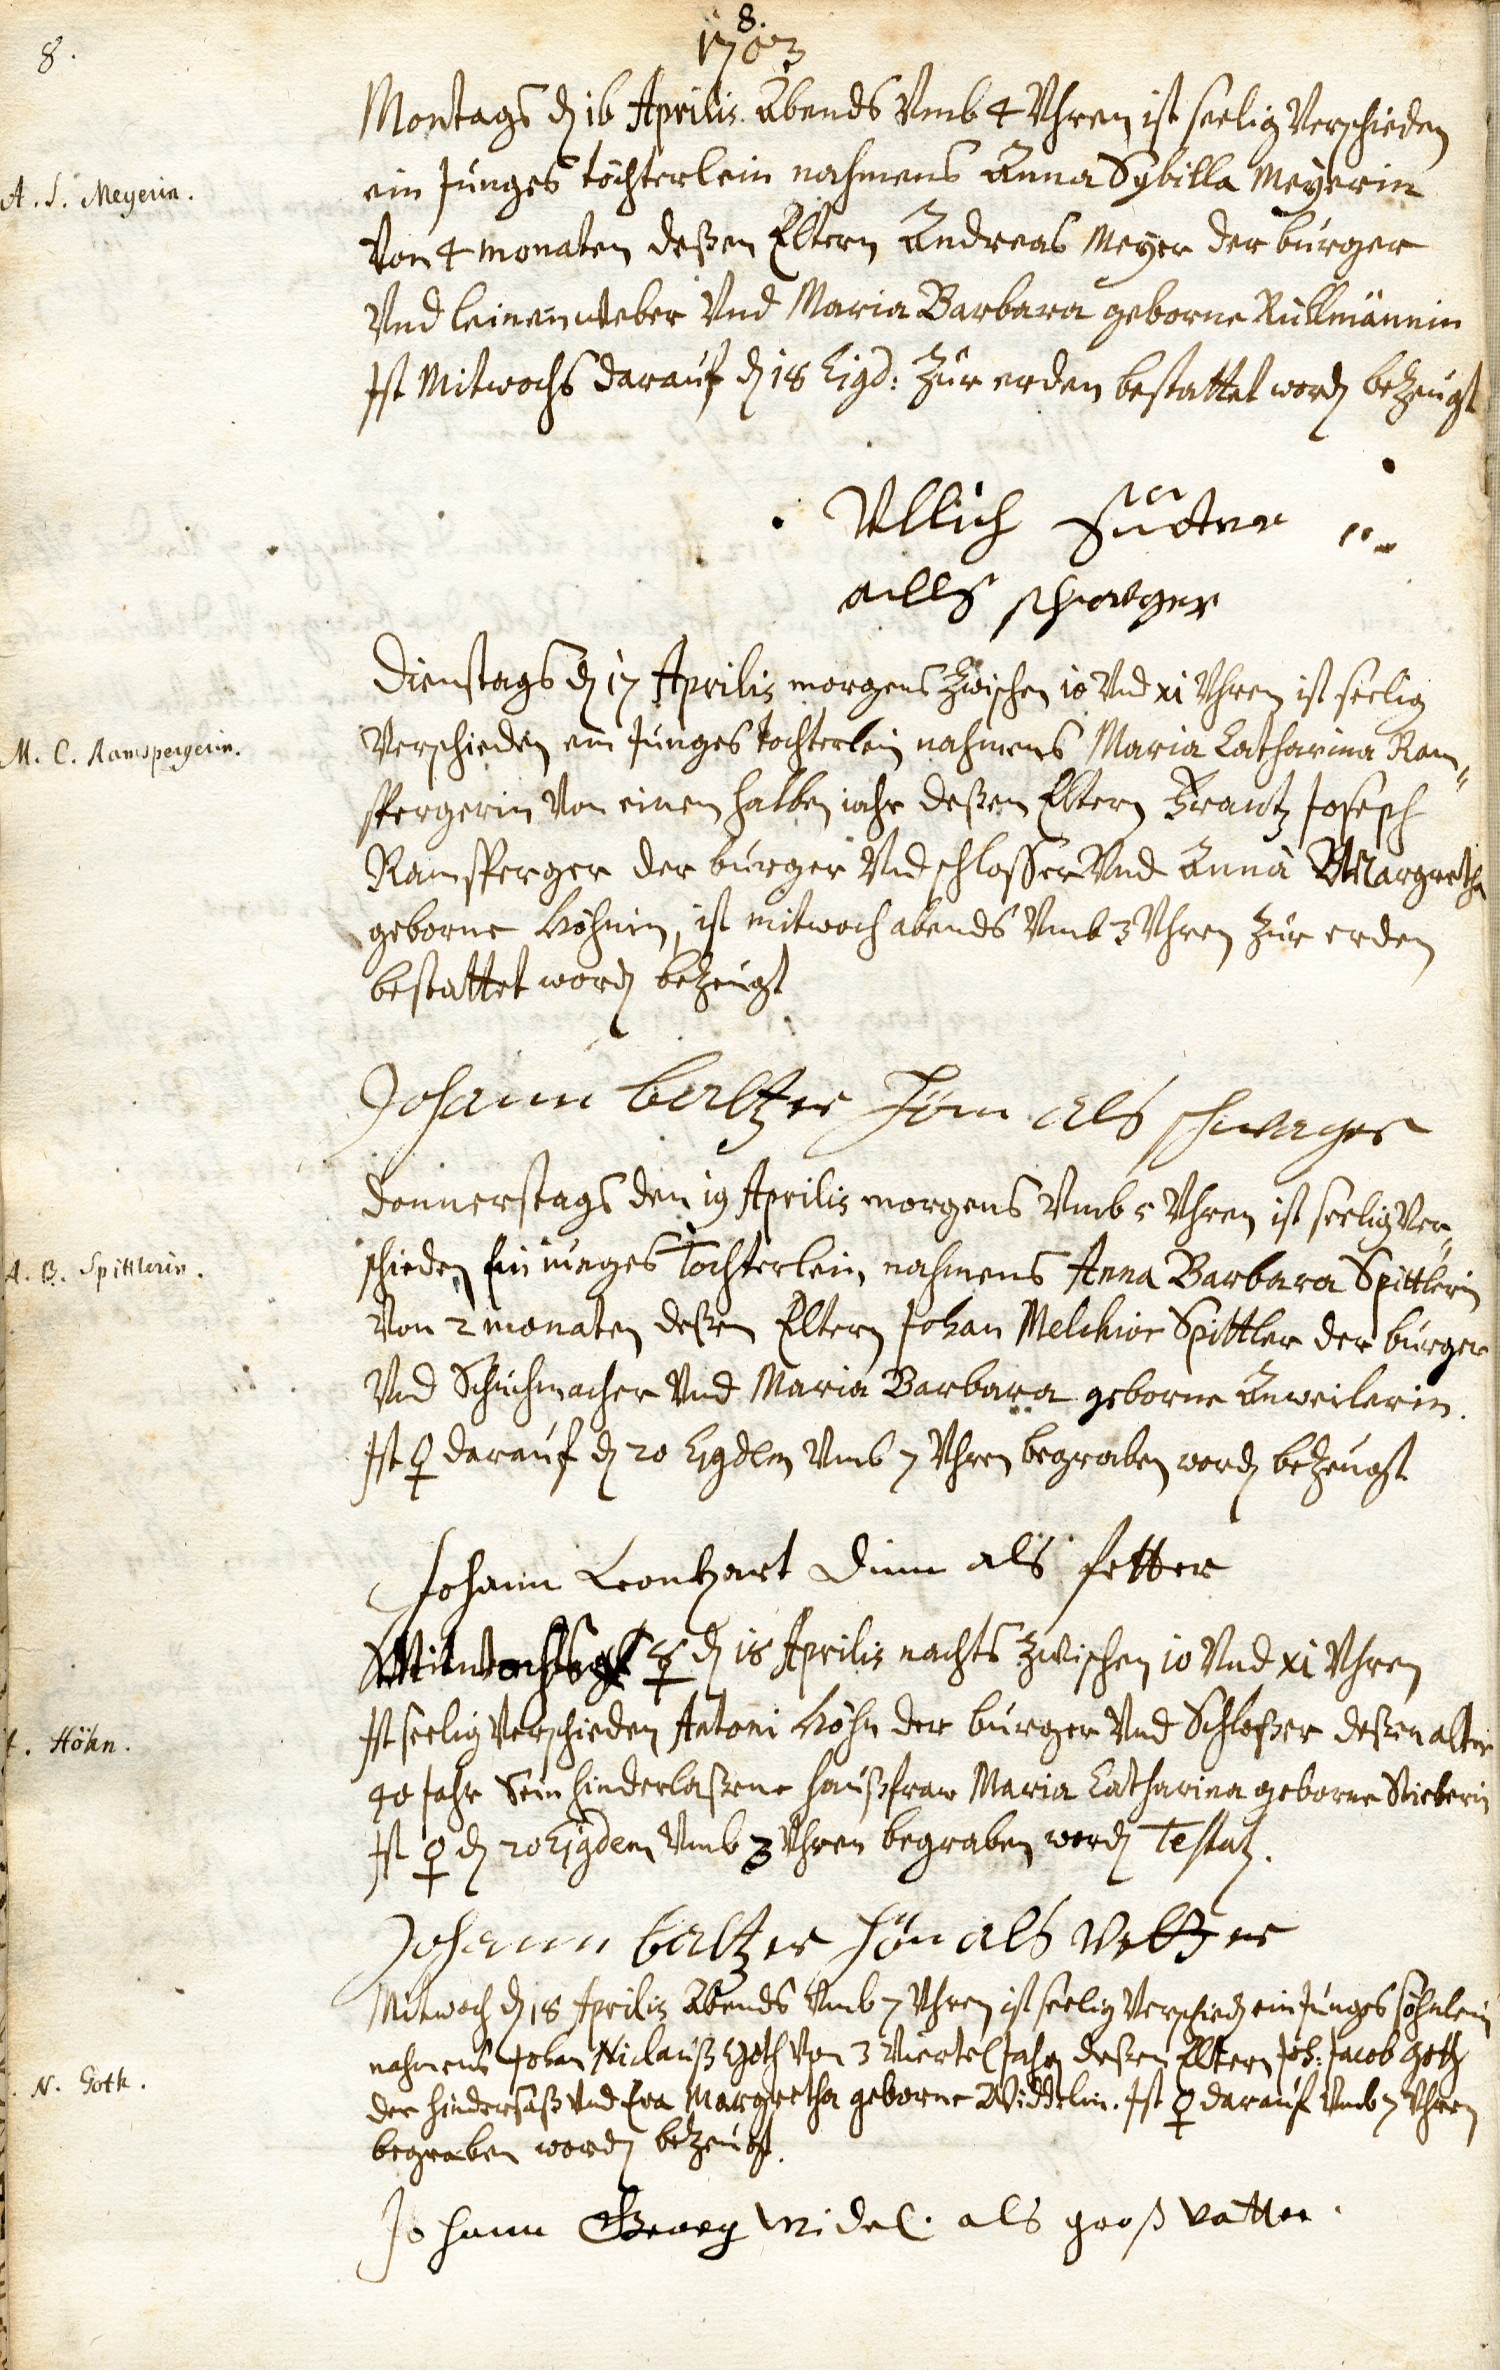 8.
8.
1703
Montags d 16 Aprilis. Abends Vmb 4 Vhren ist seelig Verschieden
A. S. Meyerin.
ein Junges töchterlein nahmens Anna Sybilla Meyerin
Von 4 monaten deßen Eltern Andreas Meyer der burger
Vnd leinenweber Vnd Maria Barbara geborne Rullmännin
Ist Mitwochs darauf d 18 Eigd: Zur erden bestattet word bezeugt
Vllich Sutter
alls schwoger
Dienstags d 17 Aprilis morgens Zwischen 10 Vnd xi Vhren ist seelig
M. C. Ramspergerin.
Verschieden ein Junges tochterlein nahmens Maria Catharina Ram„
spergerin Von einem halben iahr deßen Eltern Frantz Joseph
Ramsperger der burger Vnd schlosser Vnd Anna Margretha
geborne Höhnin, ist mitwoch abends Vmb 3 Vhren Zur erden
bestattet word bezeugt
Johann baltzer Hön als schwager
Donnerstags den 19 Aprilis morgens Vmb 5 Vhren ist seelig Ver„
A. B. Spittlerin.
schieden Ein iunges Tochterlein nahmens Anna Barbara Spittlerin
Von 2 monaten deßen Eltern Johan Melchior Spittler der burger
Vnd Schuchmacher Vnd Maria Barbara geborne Anweilerin.
Ist ♀ darauf d 20 Eigdem Vmb 7 Vhren begraben word bezeugt
Johann Leonhart Dinn als fetter
Mitwochs ☿ d 18 Aprilis nachts Zwischen 10 Vnd xi Vhren
Ist seelig Verschieden Antoni Höhn der burger Vnd Schloßer deßen alter
. Höhn.
40 Jahr Sein hinderlaßene haußfraw Maria Catharina geborne Stieberin
Ist ♀ d 20 Eigdem Vmb 3 Vhren begraben word Testatz.
Johann baltzer Hön als Vetter
Mitwoch d 18 Aprilis Abends Vmb 7 Vhren ist seelig Verschied ein Junges söhnlein
nahmens Johan Niclauß Goth Von 3 Viertel Jahr deßen Eltern Joh: Jacob Goth
. N. Goth.
der hindersaß Vnd Eva Margretha geborne Widdelin. Ist ♀ darauf Vmb 7 Vhren
begraben word bezeugt.
Johann Georg Widel. als groß Vatter.